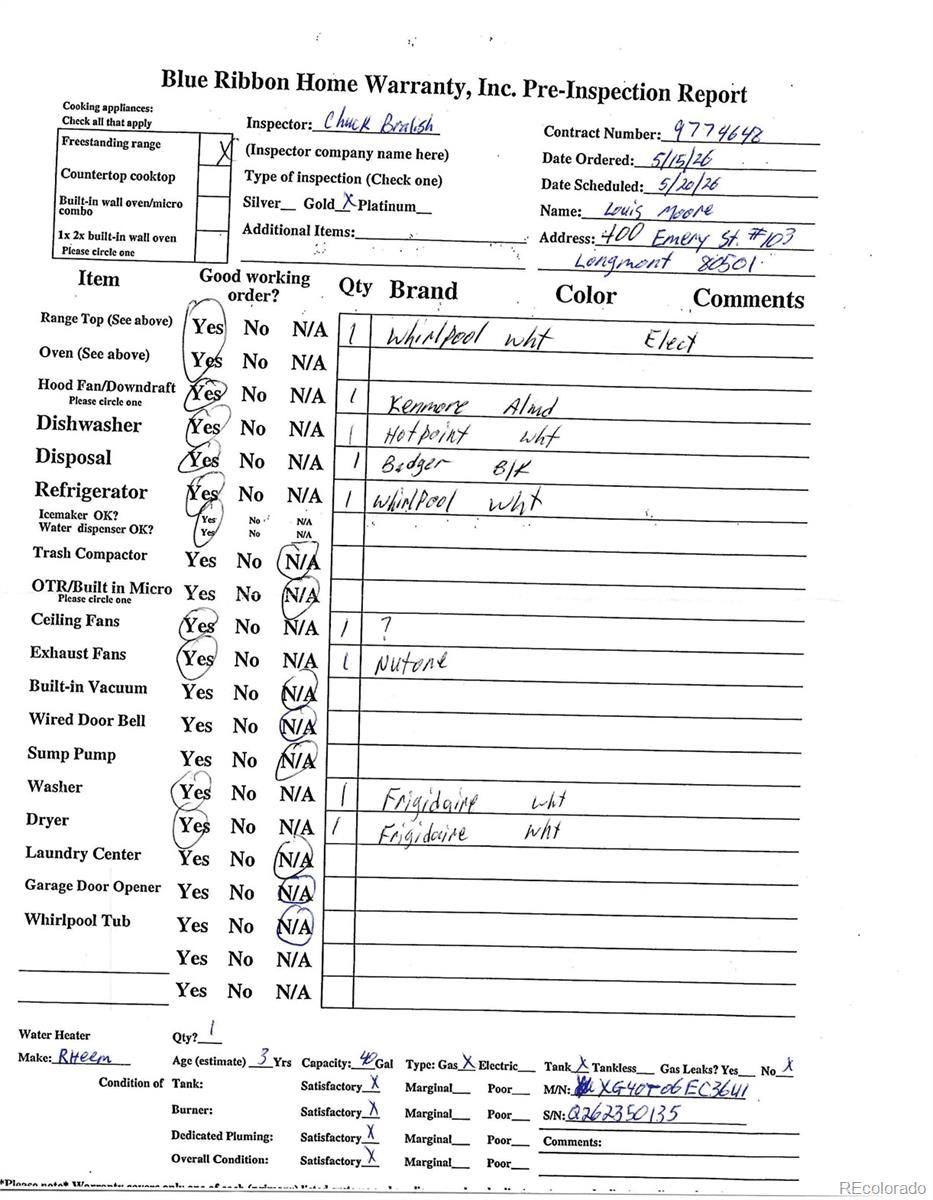 Blue Ribbon Home Warranty, Inc. Pre-Inspection Report
Cooking appliances:
Check all that apply
Freestanding range X
Countertop cooktop
Built-in wall oven/micro combo
1x 2x built-in wall oven
Please circle one
Inspector: Chuck Bralish
(Inspector company name here)
Type of inspection (Check one)
Silver__ Gold X Platinum__
Additional Items:
Contract Number: 9774648
Date Ordered: 5/15/26
Date Scheduled: 5/20/26
Name: Louis Moore
Address: 400 Emery St. #103
Longmont 80501
Item Good working order? Qty Brand Color Comments
Range Top (See above) Yes No N/A 1 Whirlpool wht Elect
Oven (See above) Yes No N/A
Hood Fan/Downdraft Yes No N/A 1 Kenmore Almd
Please circle one
Dishwasher Yes No N/A 1 Hotpoint wht
Disposal Yes No N/A 1 Badger Blk
Refrigerator Yes No N/A 1 Whirlpool wht
Icemaker OK? Yes No N/A
Water dispenser OK? Yes No N/A
Trash Compactor Yes No N/A
OTR/Built in Micro Yes No N/A
Please circle one
Ceiling Fans Yes No N/A 1 ?
Exhaust Fans Yes No N/A 1 Nutone
Built-in Vacuum Yes No N/A
Wired Door Bell Yes No N/A
Sump Pump Yes No N/A
Washer Yes No N/A 1 Frigidaire wht
Dryer Yes No N/A 1 Frigidaire wht
Laundry Center Yes No N/A
Garage Door Opener Yes No N/A
Whirlpool Tub Yes No N/A
Yes No N/A
Yes No N/A
Water Heater Qty? 1
Make: RHeem Age (estimate) 3 Yrs Capacity: 40 Gal Type: Gas X Electric__ Tank X Tankless__ Gas Leaks? Yes__ No X
Condition of Tank: Satisfactory X Marginal__ Poor__ M/N: XG40T06EC36U1
Burner: Satisfactory X Marginal__ Poor__ S/N: Q262350135
Dedicated Pluming: Satisfactory X Marginal__ Poor__ Comments:
Overall Condition: Satisfactory X Marginal__ Poor__
*Please note* Warranty covers only one of each (primary) listed
REcolorado